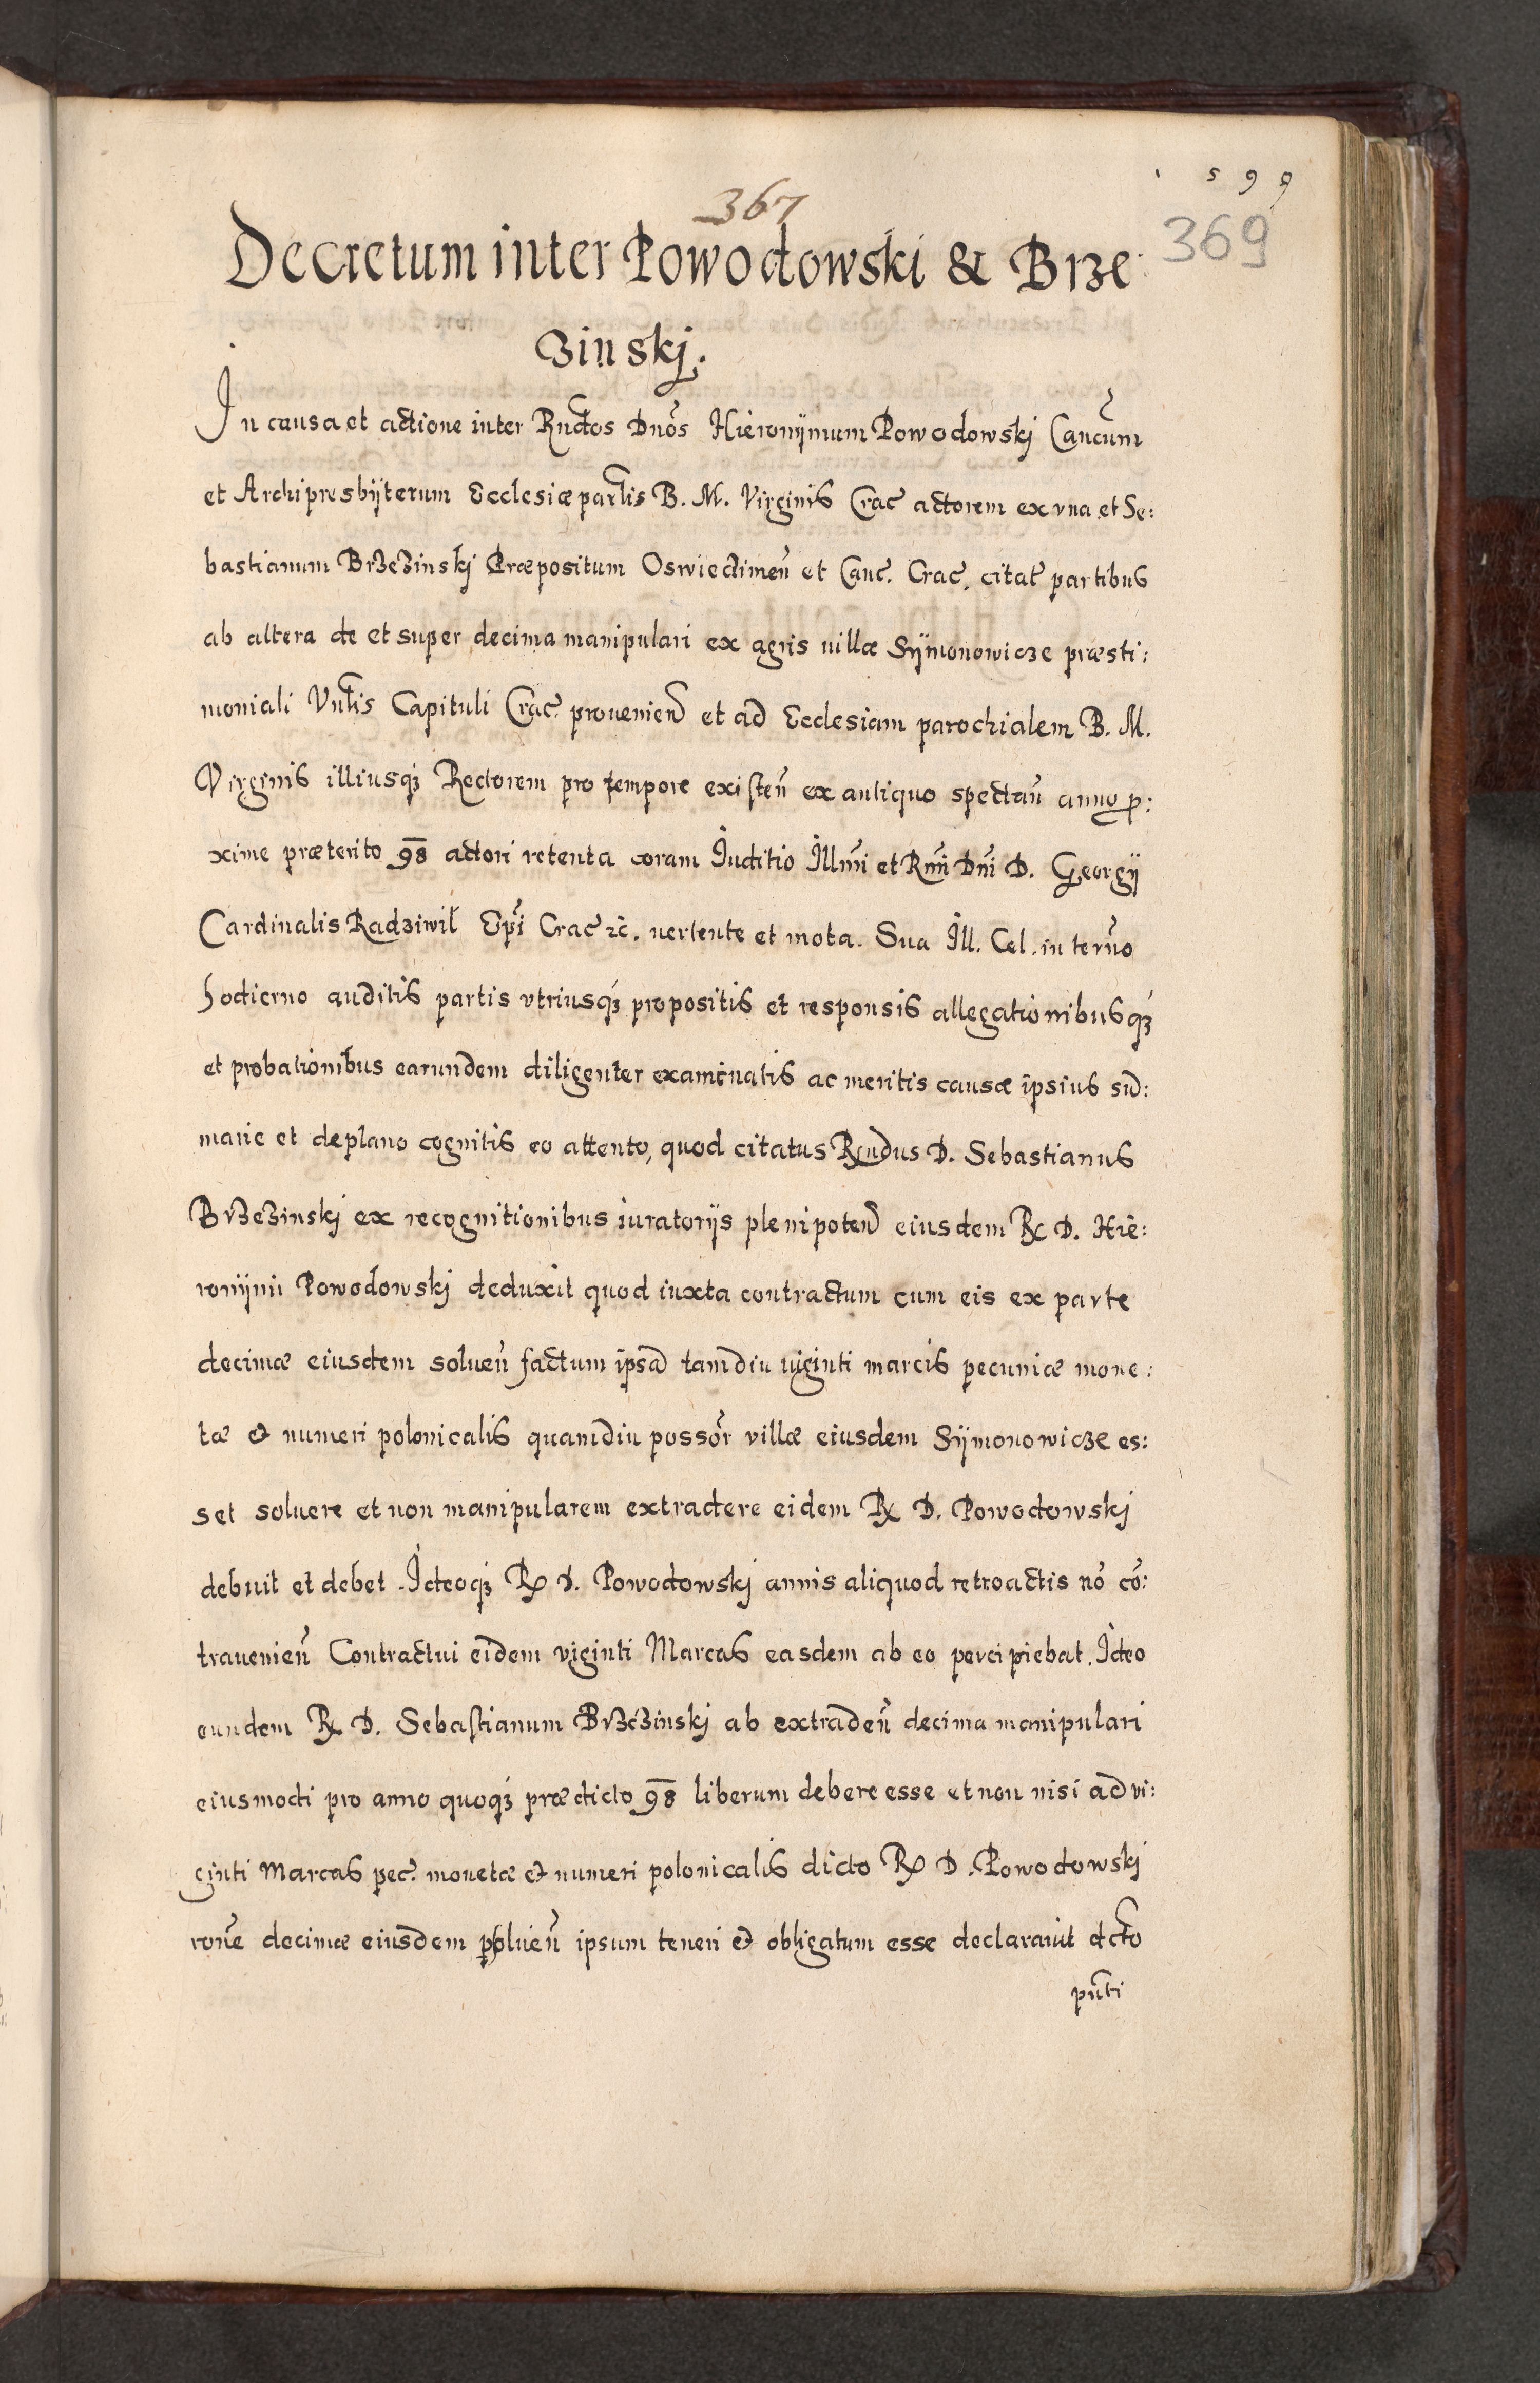 599
367
369
Decretum inter Powodowski & Brze
zinskj.
In causa et actione inter Rndos Dnos Hieronÿmum Powodowskj Cancum
et Archipresbÿterum Ecclesiæ parlis B. M. Virginis Crac actorem ex vna et Se:
bastianum Brzezinskj Præpositum Oswiecimen et Canc. Crac. citat partibus
ab altera de et super decima manipulari ex agris villæ Sÿmonowicze præsti:
moniali Vnlis Capituli Crac. prouenien et ad Ecclesiam parochialem B. M.
Virginis illiusq3 Rectorem pro tempore existen ex antiquo spectan anno p:
xime præterito 98 actori retenta coram Iuditio Illmi et Rmi Dni D. Georgÿ
Cardinalis Radziwil Epi Crac rc. vertente et mota. Sua Ill. Cel. in termo
hodierno auditis partis vtriusq3 propositis et responsis allegationibusq3
et probationibus earundem diligenter examinatis ac meritis causæ ipsius sum:
marie et deplano cognitis eo attento, quod citatus Rndus D. Sebastianus
Brzezinskj ex recognitionibus iuratorÿs plenipoten eiusdem R D. Hie:
ronÿmi Powodowskj deduxit quod iuxta contractum cum eis ex parte
decimæ eiusdem soluen factum ipsa tamdiu viginti marcis pecuniæ mone:
tæ et numeri polonicalis quamdiu possor villæ eiusdem Sÿmonowicze es:
set soluere et non manipularem extradere eidem R D. Powodowskj
debuit et debet. Ideoq3 R D. Powodowskj annis aliquod retroactis no co:
trauenien Contractui eidem viginti Marcas easdem ab eo percipiebat. Ideo
eundem R D. Sebastianum Brzezinskj ab extraden decima manipulari
eiusmodi pro anno quoq3 prædicto 98 liberum debere esse et non nisi ad vi:
ginti Marcas pec. monetæ et numeri polonicalis dicto R D. Powodowskj
rone decimæ eiusdem psoluen ipsum teneri et obligatum esse declarauit dcto
pnti